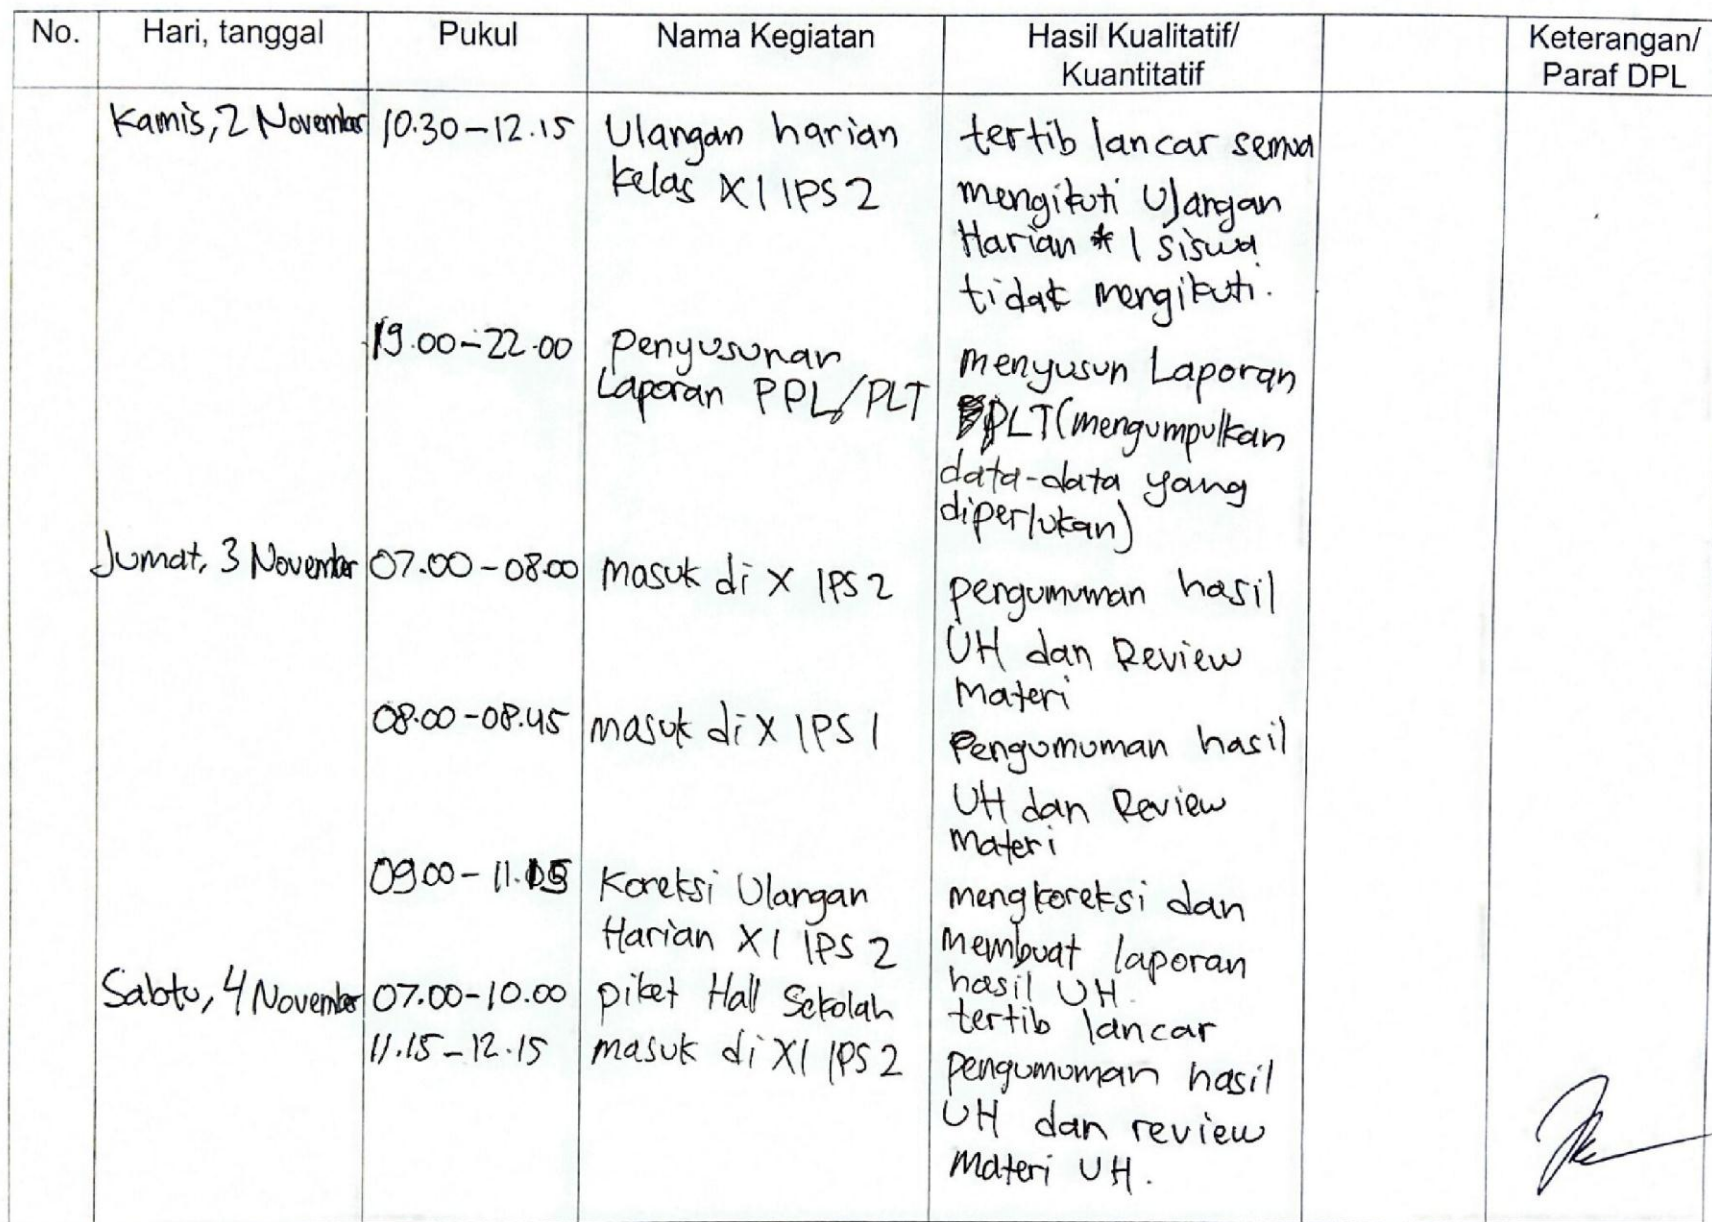 No. Hari, tanggal Pukul Nama Kegiatan Hasil Kualitatif/ Keterangan/
Kuantitatif Paraf DPL
Kamis, 2 November 10.30-12.15 Ulangan harian tertib lancar semua
kelas XI IPS 2 mengikuti Ulangan
Harian * 1 siswa
tidak mengikuti.
19.00-22.00 Penyusunan menyusun Laporan
Laporan PPL/PLT PLT (mengumpulkan
data-data yang
diperlukan)
Jumat, 3 November 07.00-08.00 masuk di X IPS 2 pengumuman hasil
UH dan Review
Materi
08.00-08.45 masuk di X IPS 1 Pengumuman hasil
UH dan Review
Materi
09.00-11. Koreksi Ulangan mengkoreksi dan
Harian XI IPS 2 membuat laporan
hasil UH.
Sabtu, 4 November 07.00-10.00 piket Hall Sekolah tertib lancar
11.15-12.15 masuk di XI IPS 2 pengumuman hasil
UH dan review
Materi UH.